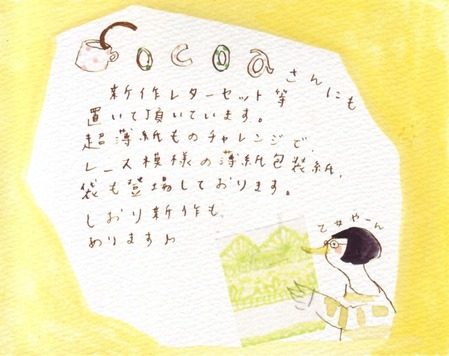 cocoaさんにも
新作レターセット等
置いて頂いています。
超薄紙ものチャレンジで、
レース模様の薄紙包装紙、
袋も登場しております。
しおり新作も、
ありますわ
てゅやーん